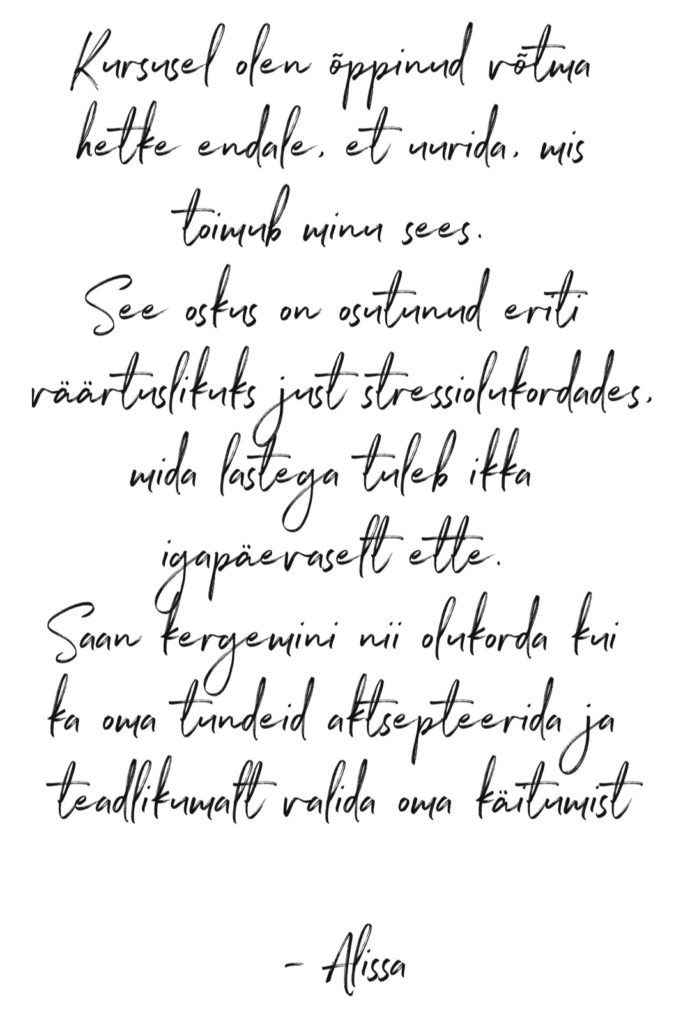 Kursusel olen õppinud võtma
hetke endale, et uurida, mis
toimub minu sees.
See oskus on osutunud eriti
väärtuslikuks just stressiolukordades,
mida lastega tuleb ikka
igapäevaselt ette.
Saan kergemini nii olukorda kui
ka oma tundeid aktsepteerida ja
teadlikumalt valida oma käitumist
- Alissa